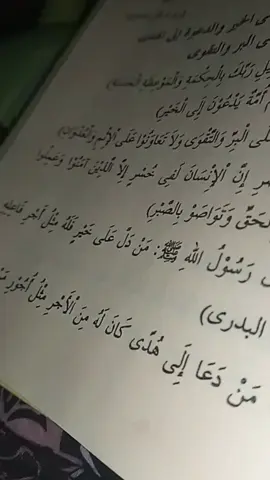 ى الخير والدعوة إلى
ى البر والتقوى
يلِ رَبِّكَ بِالْحِكْمَةِ وَالْمَوْعِظَةِ الْحَسَنَةِ)
أُمَّةٌ يَدْعُوْنَ اِلَى الْخَيْرِ)
لَى الْبِرِّ وَالتَّقْوَى وَلَا تَعَاوَنُوْا عَلَى الْإِثْمِ وَالْعُدْوَانِ)
رِ إِنَّ الْإِنْسَانَ لَفِى خُسْرٍ إِلَّا الَّذِيْنَ آمَنُوْا وَعَمِلُوا
لْحَقِّ وَتَوَاصَوْ بِالصَّبْرِ)
رَسُوْلُ اللهِ ﷺ: مَنْ دَلَّ عَلَى خَيْرٍ فَلَهُ مِثْلُ أَجْرِ فَاعِلِهِ
البدرى)
مَنْ دَعَا إِلَى هُدًى كَانَ لَهُ مِنَ الْأَجْرِ مِثْلُ أُجُوْرِ